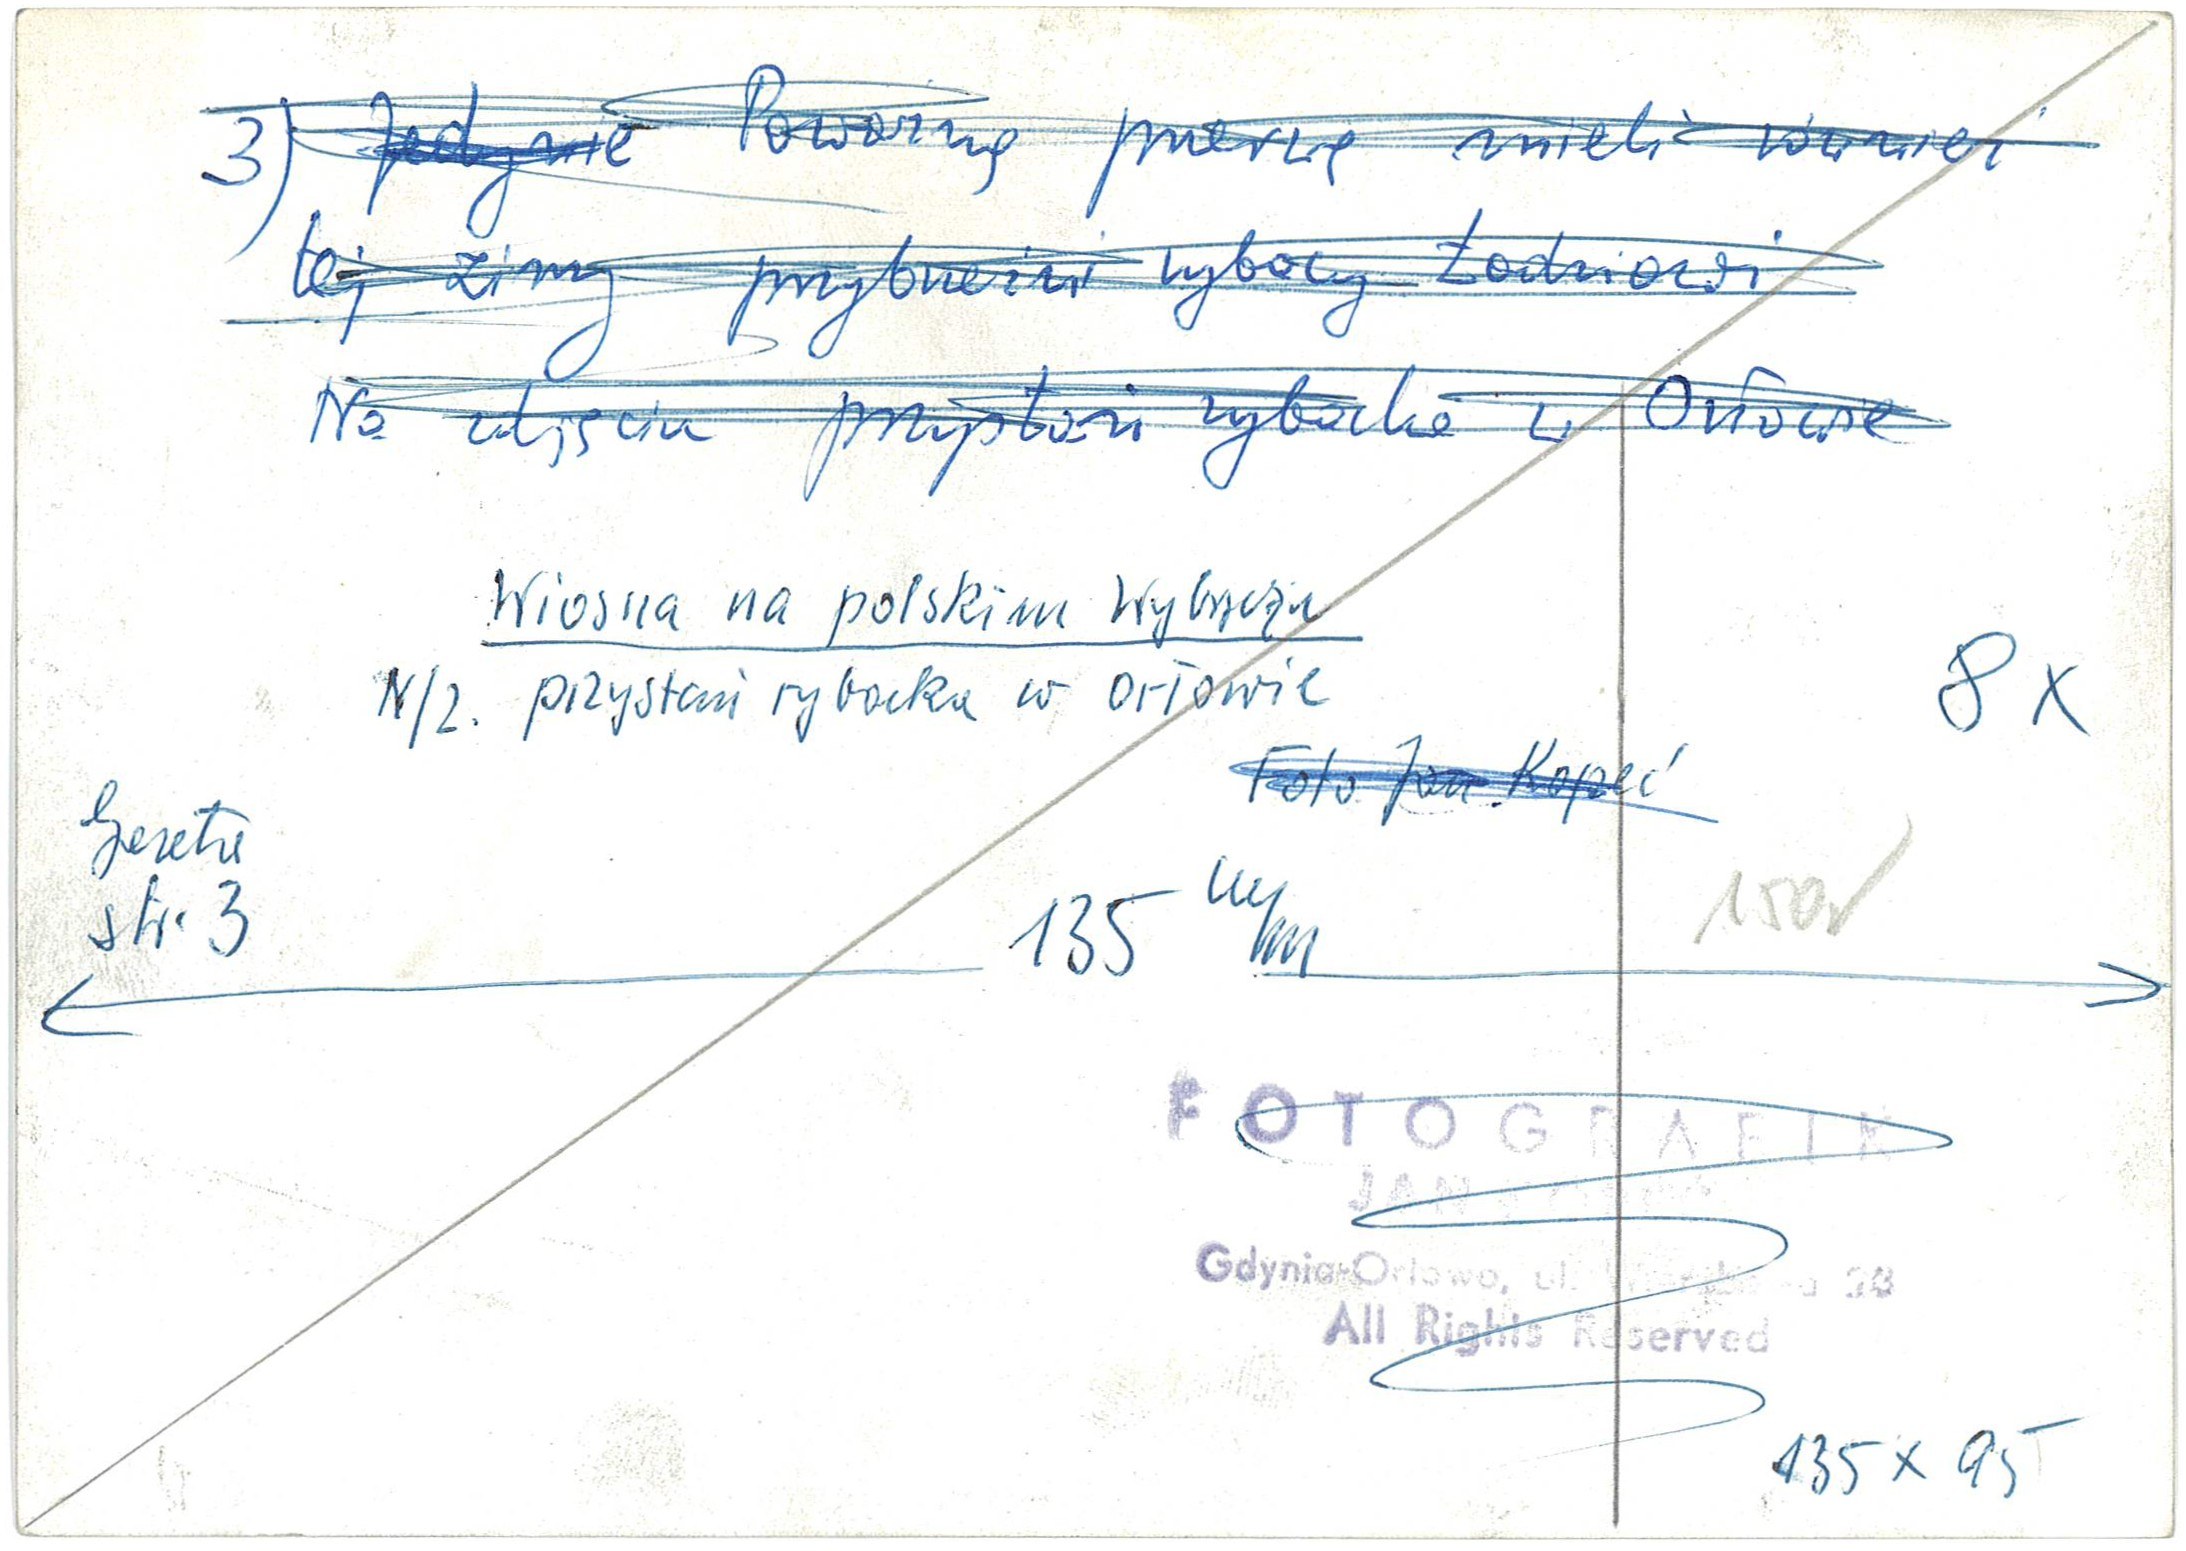 3) Jedynie Poważną przerwę mieli również
tej zimy przybrzeżni rybacy łodziowi
Na zdjęciu przystań rybacka w Orłowie
Wiosna na polskim Wybrzeżu
N/z. przystań rybacka w Orłowie
8 x
Foto Jan Kopeć
Gazeta
str. 3
135 m/m
150
FOTOGRAFIK
JAN
Gdynia-Orłowo, ul.
All Rights Reserved
135 x 95